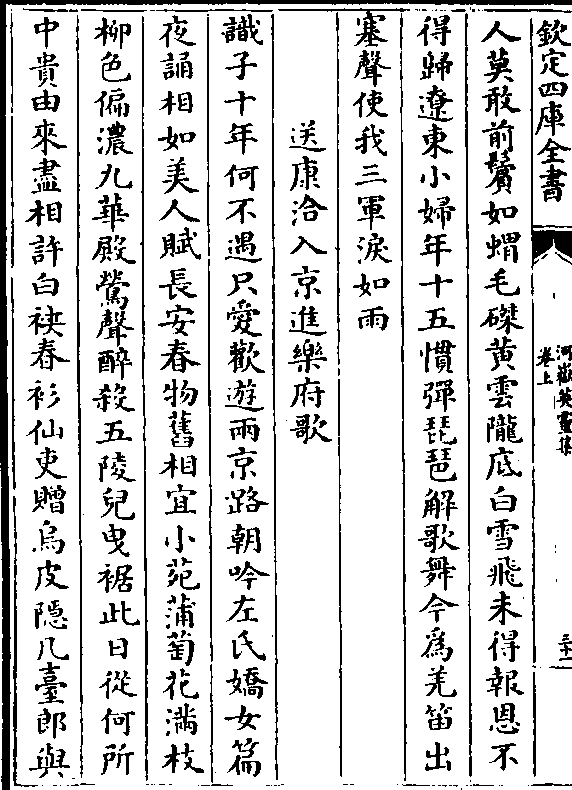 欽定四庫全書
河嶽英靈集
卷上
三十二
人莫敢前鬢如蝟毛磔黄雲隴底白雪飛未得報恩不
得歸遼東小婦年十五慣彈琵琶解歌舞今為羌笛出
塞聲使我三軍淚如雨
送康洽入京進樂府歌
識子十年何不遇只愛歡遊兩京路朝吟左氏嬌女篇
夜誦相如美人賦長安春物舊相宜小苑蒲萄花滿枝
柳色偏濃九華殿鶯聲醉殺五陵兒曵裾此日從何所
中貴由來盡相許白裌春衫仙吏贈烏皮隱几臺郎與